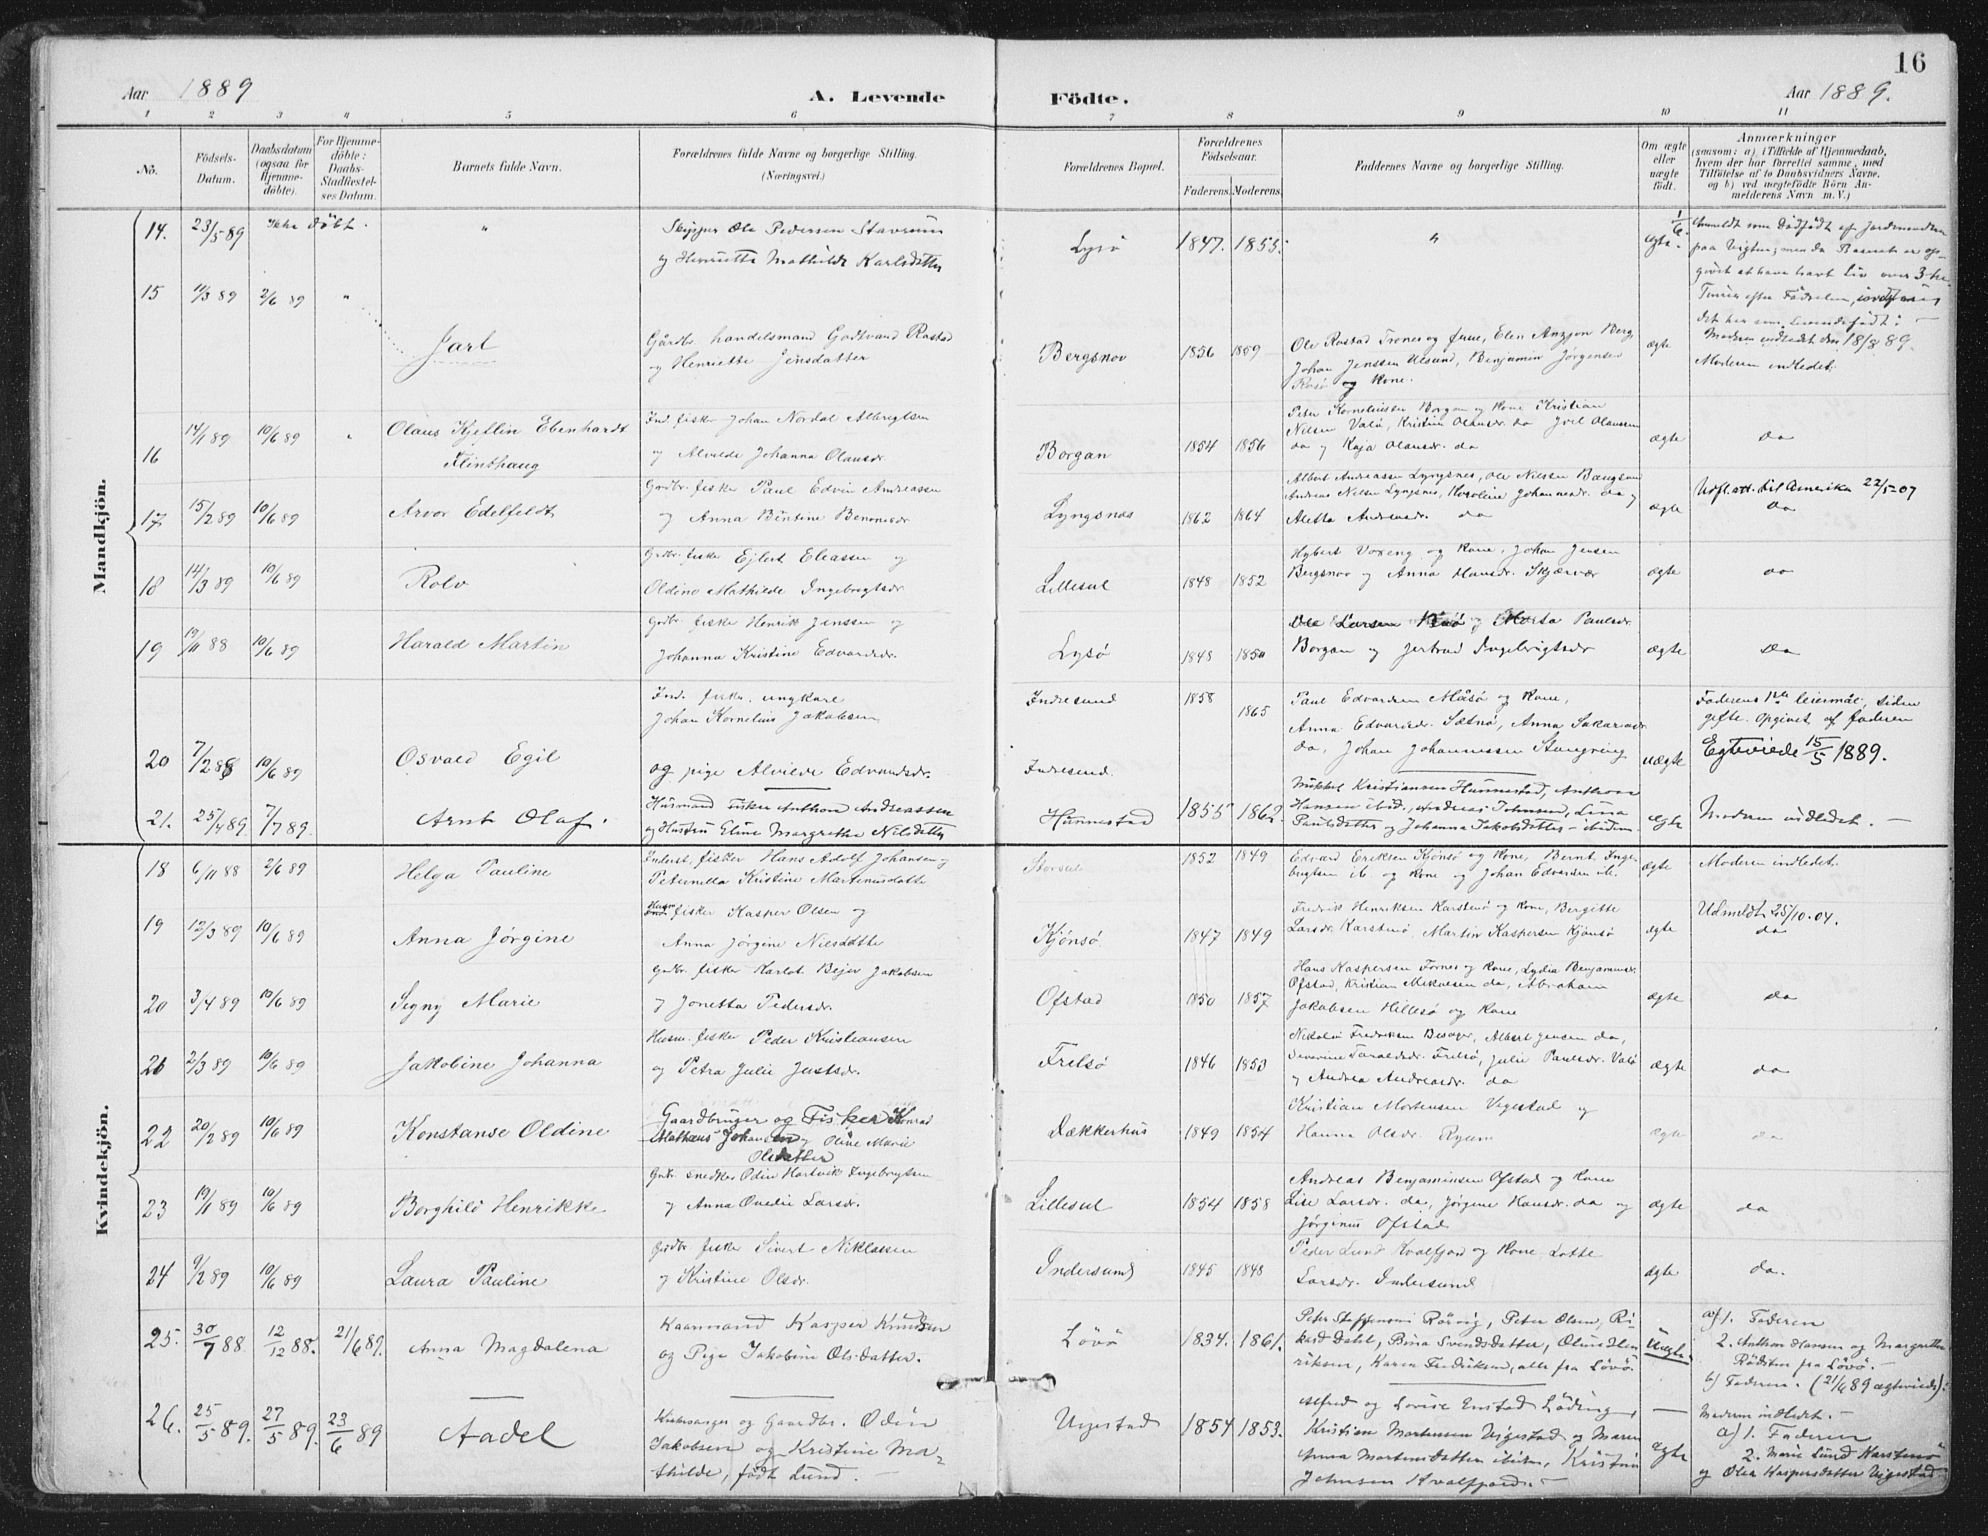 16
Aar 1889
A. Levende Födte.
Aar 1889.
1 2 3 4 5 6 7 8 9 10 11
No.
Födsels-Datum.
Daabsdatum (ogsaa för Hjemmedöbte).
For Hjemmedöbte: Daabs-Stadfæstelses Datum.
Barnets fulde Navn.
Forældrenes fulde Navne og borgerlige Stilling. (Næringsvei.)
Forældrenes Bopæl.
Forældrenes Födselsaar.
Faderens. Moderens.
Faddernes Navne og borgerlige Stilling.
Om ægte eller uægte födt.
Anmærkninger
(saasom: a) i Tilfælde af Hjemmedaab, hvem der har forrettet samme, med Tilföielse af to Daabsvidners Navne, og b) ved uægtefödte Börn Anmelderens Navn m. V.)
Mandkjön.
14. 23/5 89 Ikke döbt. " Skipper Ole Pedersen Stavrum
og Henriette Mathilde Karlsdatter Lysö 1847. 1855. " ægte.
15 11/3 89 2/6 89 " Jarl Gårdbr. handelsmand Godtvard Rostad
og Henriette Jensdatter Bergsnov 1856 1859 Ole Rostad Trones og frue, Elen Anzjon Berg,
Johan Jenssen Ulsund, Benjamin Jörgensen
Rosö og kone. ægte Moderen indledet.
16 14/1 89 10/6 89 " Olaus Kjellin Ebenhardt
Flinthaug Ind. fisker Johan Nordal Albregtsen
og Alvilde Johanna Olausdr. Borgan 1854 1856 Peter Korneliussen Borgan og kone, Kristian
Nilsen Valö, Kristine Olausdr. da Joel Olaussen
da og Kaja Olausdr. da ægte da
17 15/2 89 10/6 89 Arvor Edelfeldt Grdbr. fisker Paul Edvin Andreassen
og Anna Bentine Benonisdr. Lyngsnes 1862 1864 Albert Andreassen Lyngsnes, Ole Nilssen
Andreas Nilsen Lyngsnes, Karoline Johannesdr. da og
Aletta Andreasdr. da ægte Udflytt. til Amerika 22/5-07
da
18 14/3 89 10/6 89 Rolv Grdbr. fisker Ejlert Eleassen og
Oldine Mathilde Ingebrigtsdr. Lillesul 1848 1852 Hybert Voxeng og kone, Johan Jensen
Bergsnov og Anna Hansdr. Skjærvær ægte da
19 19/11 88 10/6 89 Harald Martin Grdbr. fisker Henrik Jenssen og
Johanna Kristine Edvardsdr. Lysö 1848 1850 Ole Larsen og Marta Paulsdr.
Borgan og Jertrud Ingebrigtsdr ægte Da
20 7/2 88 10/6 89 Osvald Egil Ind. fisker, ungkare
Johan Kornelius Jakobsen
og pige Alvilde Edvardsdr. Indresund
Indresund. 1858 1865 Paul Edvardsen Måsö og kone,
Anna Edvardsdr. Sætnö, Anna Sakariasdr
da, Johan Johannessen uægte Faderens 1ste leiermål, siden
gifte. Opgivet af faderen
Egteviede 15/5 1889.
21. 25/4 89 7/7 89. Arnt Olaf. Husmand Fisker Anthon Andreassen
og Hustru Eline Margrethe Nilsdatter Hunnestad 1855 1862. Mikkel Kristiansen Hunnestad, Anthon
Hansen ibid., Andreas Johnsen, Lina
Paulsdatter og Johanna Jakobsdatter - ibidem ægte Moderen indledet. —
Kvindekjön.
18 6/11 88 2/6 89 Helga Pauline Inderst, fisker Hans Adolf Johansen og
Peternella Kristine Martinusdatter Storsul 1852 1849 Edvard Eriksen Kjönsö og kone, Bernt Inge-
brigtsen ib. og kone og Johan Edvardsen ib. ægte Moderen indledet.
19 12/3 89 10/6 89 Anna Jörgine fisker Kasper Olsen og
Anna Jörgine Nilsdatter Kjönsö. 1847 1849 Fredrik Henriksen Karstenö og kone, Bergitte
Larsdr. Karstenö, Martin Kaspersen Kjönsö ægte Udmeldt 25/10-04.
da
20 3/4 89 10/6 89 Signy Marie Grdbr. fisker Karlot Bejer Jakobsen
og Jonetta Pedersdr. Ofstad 1850 1857 Hans Kaspersen Fornes og kone, Lydia Benjaminsdr.
Ofstad, Kristian Mikalsen da, Abraham
Jakobsen Hillesö og kone ægte da
21 2/3 89 10/6 89 Jakobine Johanna Husm. fisker Peder Kristiansen
og Petra Julie Justsdr. Frelsö 1846 1853 Nikolai Fredriksen Besager, Albert Jensen da,
Severine Taraldsdr. Frelsö, Julie Paulsdr. Valö
og Andrea Andreasdr. da ægte da
22 20/2 89 10/6 89 Konstanse Oldine Gaardbruger og Fisker Konrad
Mathæus Johansen og Oline Marie
Olsdatter Dækkerhus 1849 1854 Kristian Mortensen Vigestad og
Hanna Olsdr. Ryum ægte da
23 19/1 89 10/6 89 Borghild Henrikke Grdbr. snedker Odin Hartvik Ingebrigtsen
og Anna Ovedie Larsdr. Lillesul 1854 1858 Andreas Benjaminsen Ofstad og kone
Lise Larsdr. da, Jörgine Hansdr. da og
Jörginus Ofstad ægte da
24 9/2 89 10/6 89 Laura Pauline Grdbr. fisker Sivert Niklassen
og Kristine Olsdr. Indersund 1845 1848 Peder Lund Kvalfjord og kone, Lotte
Larsdr. Indersund ægte da.
25. 30/7 88 12/12 88. 21/6 89. Anna Magdalena Kaarmand Kasper Knudsen
og Pige Jakobine Olsdatter. Lövö 1834. 1861. Peter Steffensen Rörvig, Peter Olsen, Ri-
kard Dahl, Bina Svendsdatter, Oluf Hen-
riksen, Karen Fredriksen, alle fra Lövö. Uægte. a) 1. Faderen
2. Anthon Hansen og Margrethe
fra Lövö. —
b) Faderen. (21/6 89 ægteviede).
26. 25/5 89. 27/5 89. 23/6 89 Aadel Kirkesanger og Gaardbr. Odin
Jakobsen og Kristine Ma-
thilde, födt Lund. — Vigestad 1854 1853. Alfred og Lovise Enstad Löding,
Kristian Mortensen Vigestad og Maren
Anna Mortensdatter ibidem, Kristine
Johnsen Kvalfjord. — ægte Moderen indledet. —
a) 1. Faderen
2. Marie Lund Karstenö
og Olea Kaspersdatter Vigestad.